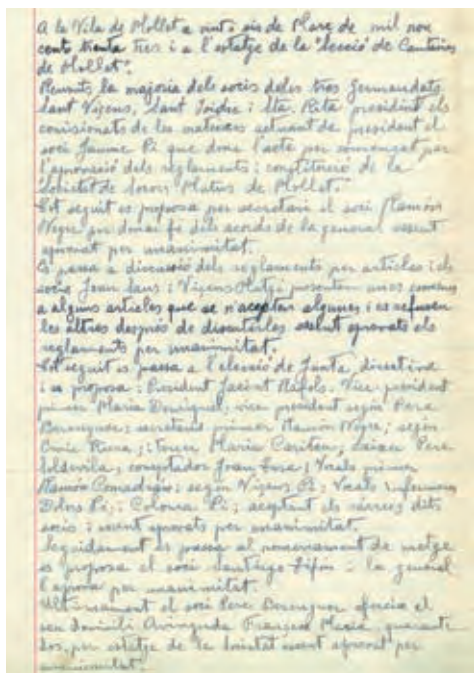 A la Vila de Mollet a vint-i-sis de Març de mil nou
cents trenta tres i a l'estatge de la "Secció de Cantaires
de Mollet".
Reunits la majoria dels socis deles tres Germandats
Sant Viçens, Sant Isidre i Sta. Rita presidint els
comisionats de les mateixes actuant de president el
soci Jaume Pi que dona l'acte per començat per
l'aprovació dels reglaments i constitució de la
Societat de Socors Mutus de Mollet.
Tot seguit es proposa per secretari el soci Ramón
Negre per donar fe dels acords de la general essent
aprovat per unanimitat.
Es passa a discussió dels reglaments per articles i els
socis Joan Sans i Viçens presenten unes
a alguns articles que se n'acepten algunes i es refusen
les altres després de discutirles sebut aprovats els
reglaments per unanimitat.
Tot seguit es passa a l'elecció de Junta directiva
i es proposa: President Jacint Ràfols, Vice president
primer Maria Domignel, vice president segón Pere
Berenguer; secretari primer Ramón Negre; segón
Riera; tercer Maria; caixer Pere
comptador Joan; Vocals primer
Ramón; segón Viçens Pi; Vocals infermeres
Dolors Pi i Coloma Pi; aceptant els càrrecs dits
socis i essent aprovats per unanimitat.
Seguidament es passa al nomenament de metge
es proposa el soci Santiago i la general
l'aprova per unanimitat.
Ultimament el soci Pere Berenguer ofereix el
seu domicili Avinguda Francesc Macià, quaranta
dos, per estatge de la Societat essent aprovat per
unanimitat.